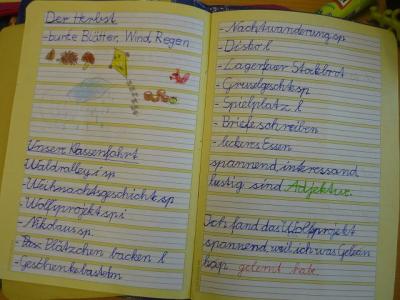 Der Herbst
-bunte Blätter, Wind, Regen
Unsere Klassenfahrt
-Waldralleyi sp
-Weihnachtsgeschichte sp
-Wolfsprojekt sp i
-Nikolaus sp.
-Plätzchen backen l
-Geschenkebasteln
-Nachtwanderung sp
-Disko l
-Lagerfeuer Stockbrot
-Gruselgeschte sp
-Spielplatz l
-Briefe schreiben
-leckeres Essen
spannend, interessand
lustig sind Adjektive.
Ich fand das Wolfsprojekt
spannend, weil ich was Gelean
hap gelernt habe.